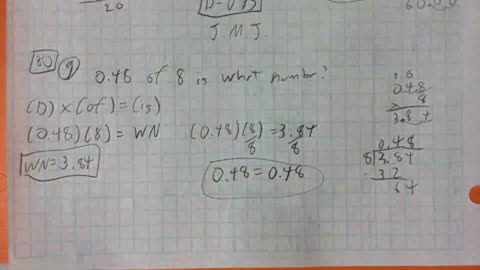 20
J.M.J.
30 g 0.48 of 8 is what number?
(D) x (of) = (is)
(0.48)(8) = WN
WN = 3.84
(0.48)(8)/8 = 3.84/8
0.48 = 0.48
0.48
x 8
3.84
0.48
8 3.84
- 32
64